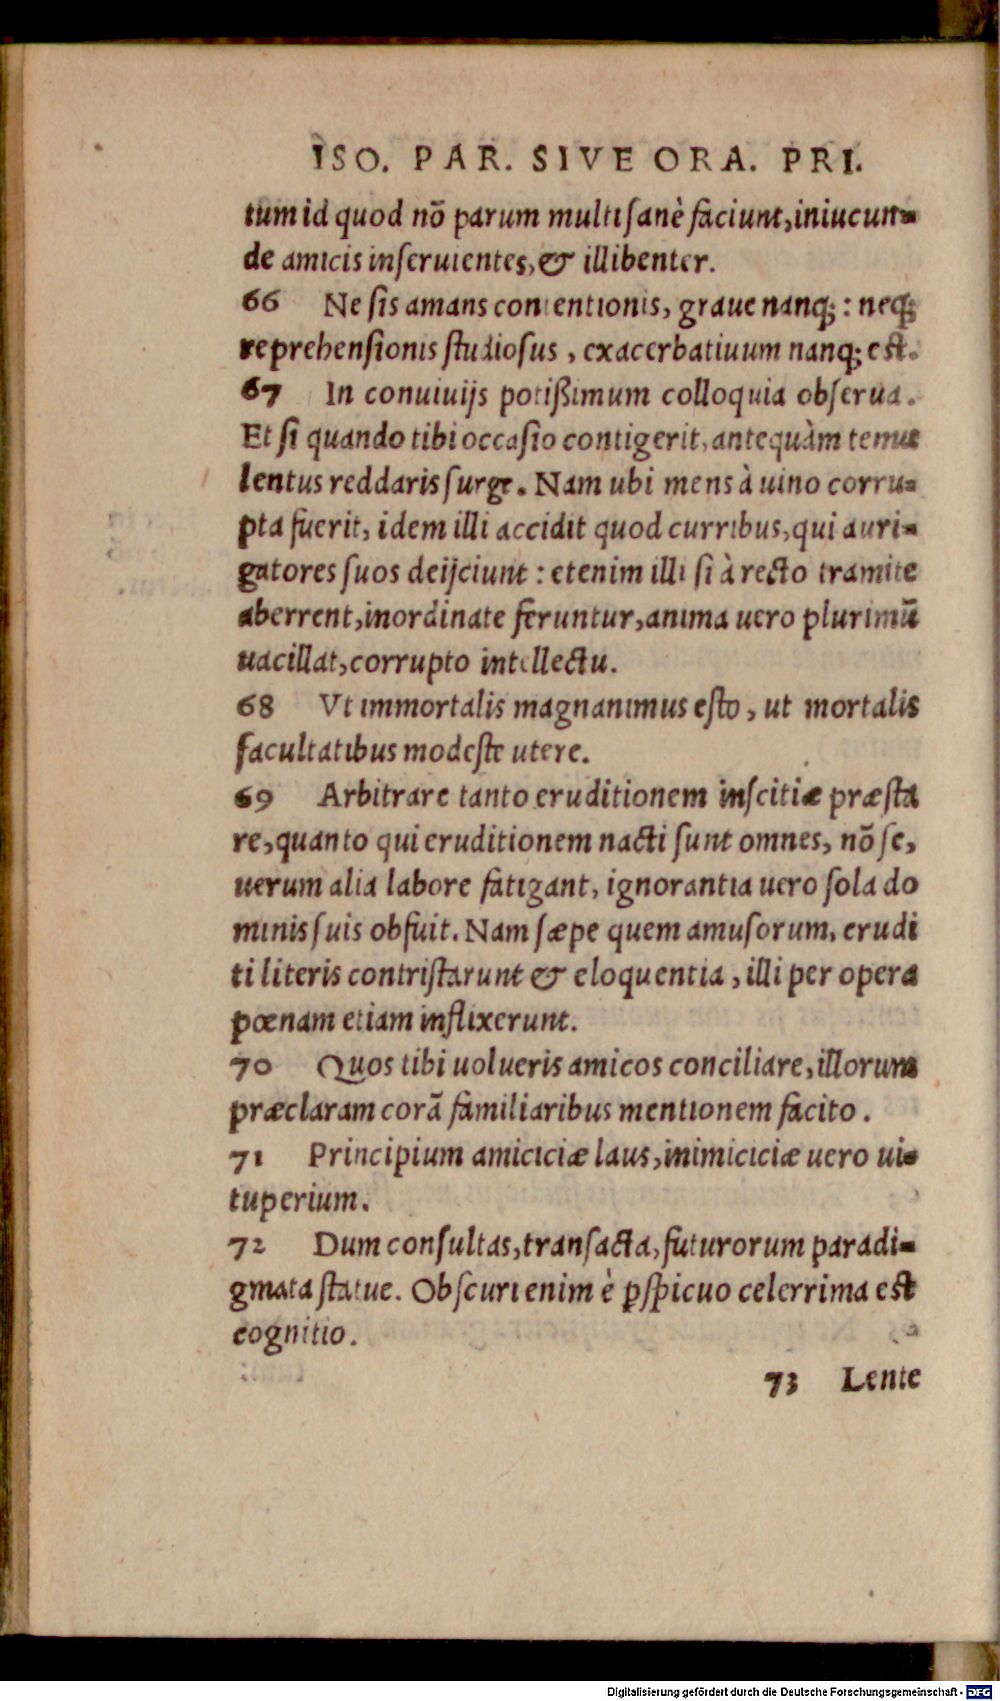 ISO. PAR. SIVE ORA. PRI.
tum id quod nõ parum multi ſanè faciunt, iniucun-
de amicis inſeruientes, & illibenter.
66 Ne ſis amans contentionis, graue nanq; : neq;
reprehenſionis ſtudioſus, exacerbatiuum nanq; eſt.
67 In conuiuijs potißimum colloquia obſerua.
Et ſi quando tibi occaſio contigerit, antequàm temu
lentus reddaris ſurge. Nam ubi mens à uino corru-
pta fuerit, idem illi accidit quod curribus, qui auri-
gatores ſuos deijciunt: etenim illi ſi à recto tramite
aberrent, inordinate feruntur, anima uero plurimũ
uacillat, corrupto intellectu.
68 Vt immortalis magnanimus eſto, ut mortalis
facultatibus modeſte utere.
69 Arbitrare tanto eruditionem inſcitiæ præſta
re, quanto qui eruditionem nacti ſunt omnes, nõ ſe,
uerum alia labore fatigant, ignorantia uero ſola do
minis ſuis obfuit. Nam ſæpe quem amuſorum, erudi
ti literis contriſtarunt & eloquentia, illi per opera
pœnam etiam inflixerunt.
70 Quos tibi uolueris amicos conciliare, illorum
præclaram corã familiaribus mentionem facito.
71 Principium amiciciæ laus, inimiciciæ uero ui-
tuperium.
72 Dum conſultas, tranſacta, futurorum paradi-
gmata ſtatue. Obſcuri enim è ꝑſpicuo celerrima eſt
cognitio.
73 Lente
Digitalisierung gefördert durch die Deutsche Forschungsgemeinschaft - DFG